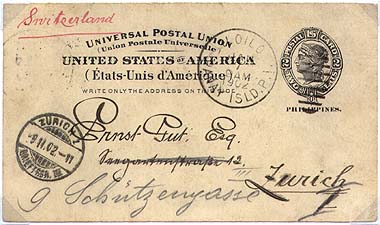 Switzerland
UNIVERSAL POSTAL UNION
(Union Postale Universelle)
UNITED STATES OF AMERICA
(États-Unis d'Amérique)
WRITE ONLY THE ADDRESS ON THIS SIDE
ILOILO
AM
02
ISLD. P.I.
POSTAL CARD
2
2
PHILIPPINES.
ZÜRICH 1
-9.II.02-11
Ernst Gut. Esq.
Seegartenstrasse 12,
III
Zurich
9 Schützengasse
I